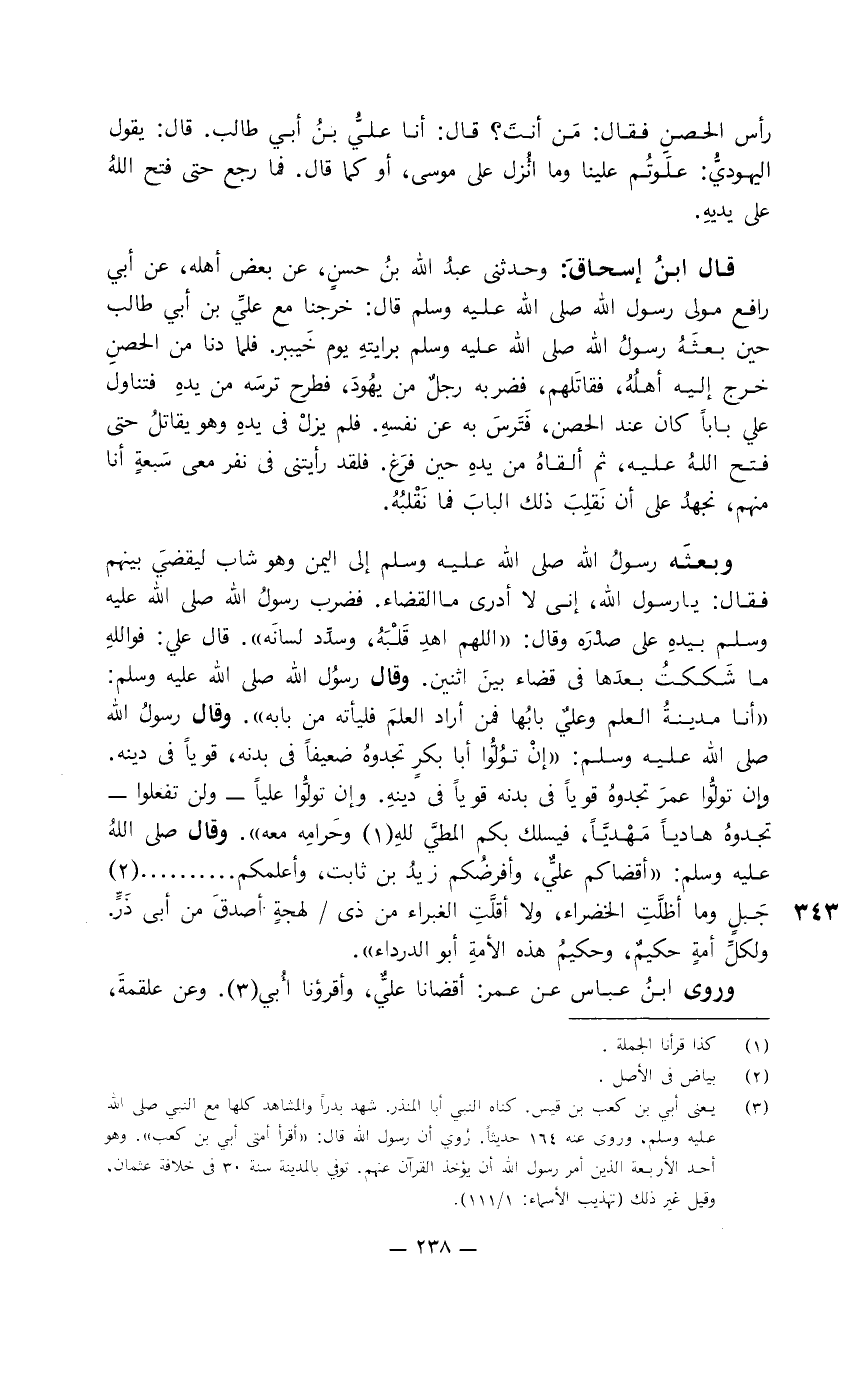 رأس الحصنِ فقال: مَن أنتَ؟ قال: أنا عليُّ بنُ أبي طالب. قال: يقول
اليهوديُّ: علَوتُم علينا وما أُنزل على موسى، أو كما قال. فما رجع حتى فتح اللهُ
على يديهِ.
قال ابنُ إسحاقَ: وحدثنى عبدُ الله بنُ حسنٍ، عن بعض أهله، عن أبي
رافع مولى رسول الله صلى الله عليه وسلم قال: خرجنا مع عليِّ بن أبي طالب
حين بعثَهُ رسولُ الله صلى الله عليه وسلم برايتهِ يوم خَيبر. فلما دنا من الحصنِ
خرج إليه أهلُهُ، فقاتَلهم، فضربه رجلٌ من يهُودَ، فطرح ترسَه من يدهِ فتناول
علي باباً كان عند الحصن، فَتَرسَ به عن نفسهِ. فلم يزلْ فى يدهِ وهو يقاتلُ حتى
فتح اللهُ عليه، ثم ألقاهُ من يدهِ حين فرَغ. فلقد رأيتنى فى نفر معى سَبعةٍ أنا
منهم، نجهدُ على أن نَقلِبَ ذلك البابَ فما نَقْلبُهُ.
وبعثَه رسولُ الله صلى الله عليه وسلم إلى اليمن وهو شاب ليقضيَ بينهم
فقال: يارسول الله، إنى لا أدرى ماالقضاء. فضرب رسولُ الله صلى الله عليه
وسلم بيدهِ على صدْرَه وقال: «اللهم اهدِ قَلْبَهُ، وسدِّد لسانَه». قال علي: فواللهِ
ما شَككتُ بعدَها فى قضاء بينَ اثنين. وقال رسوُل الله صلى الله عليه وسلم:
«أنا مدينةُ العلم وعليٌ بابُها فمن أراد العلمَ فليأته من بابه». وقال رسولُ الله
صلى الله عليه وسلم: «إنْ تولُّوا أبا بكرٍ تجدوهُ ضعيفاً فى بدنه، قوياً فى دينه.
وإن تولُّوا عمرَ تجدوهُ قوياً فى بدنه قوياً فى دينهِ. وإن تولُّوا علياً — ولن تفعلوا —
تجدوهُ هادياً مَهْديَّاً، فيسلك بكم المطيَّ للهِ(١) وحَرامِه معه». وقال صلى اللهُ
عليه وسلم: «أقضاكم عليٌّ، وأفرضُكم زيدُ بن ثابت، وأعلمكم..........(٢)
جَبلٍ وما أظلَّتِ الخضراء، ولا أقلَّتِ الغبراء من ذى / لهجةٍ أصدقَ من أبى ذَرٍّ. ٣٤٣
ولكلِّ أمةٍ حكيمٌ، وحكيمُ هذه الأمةِ أبو الدرداء».
وروى ابنُ عباس عن عمر: أقضانا عليٌّ، وأقرؤنا أُبي(٣). وعن علقمةَ،
(١) كذا قرأنا الجملة .
(٢) بياض فى الأصل .
(٣) يعنى أبي بن كعب بن قيس. كناه النبي أبا المنذر. شهد بدراً والمشاهد كلها مع النبي صلى الله
عليه وسلم. وروى عنه ١٦٤ حديثاً. رُوي أن رسول الله قال: «أقرأ أمتى أبي بن كعب». وهو
أحد الأربعة الذين أمر رسول الله أن يؤخذ القرآن عنهم. توفي بالمدينة سنة ٣٠ فى خلافة عثمان.
وقيل غير ذلك (تهذيب الأسماء: ١١١/١).
— ٢٣٨ —